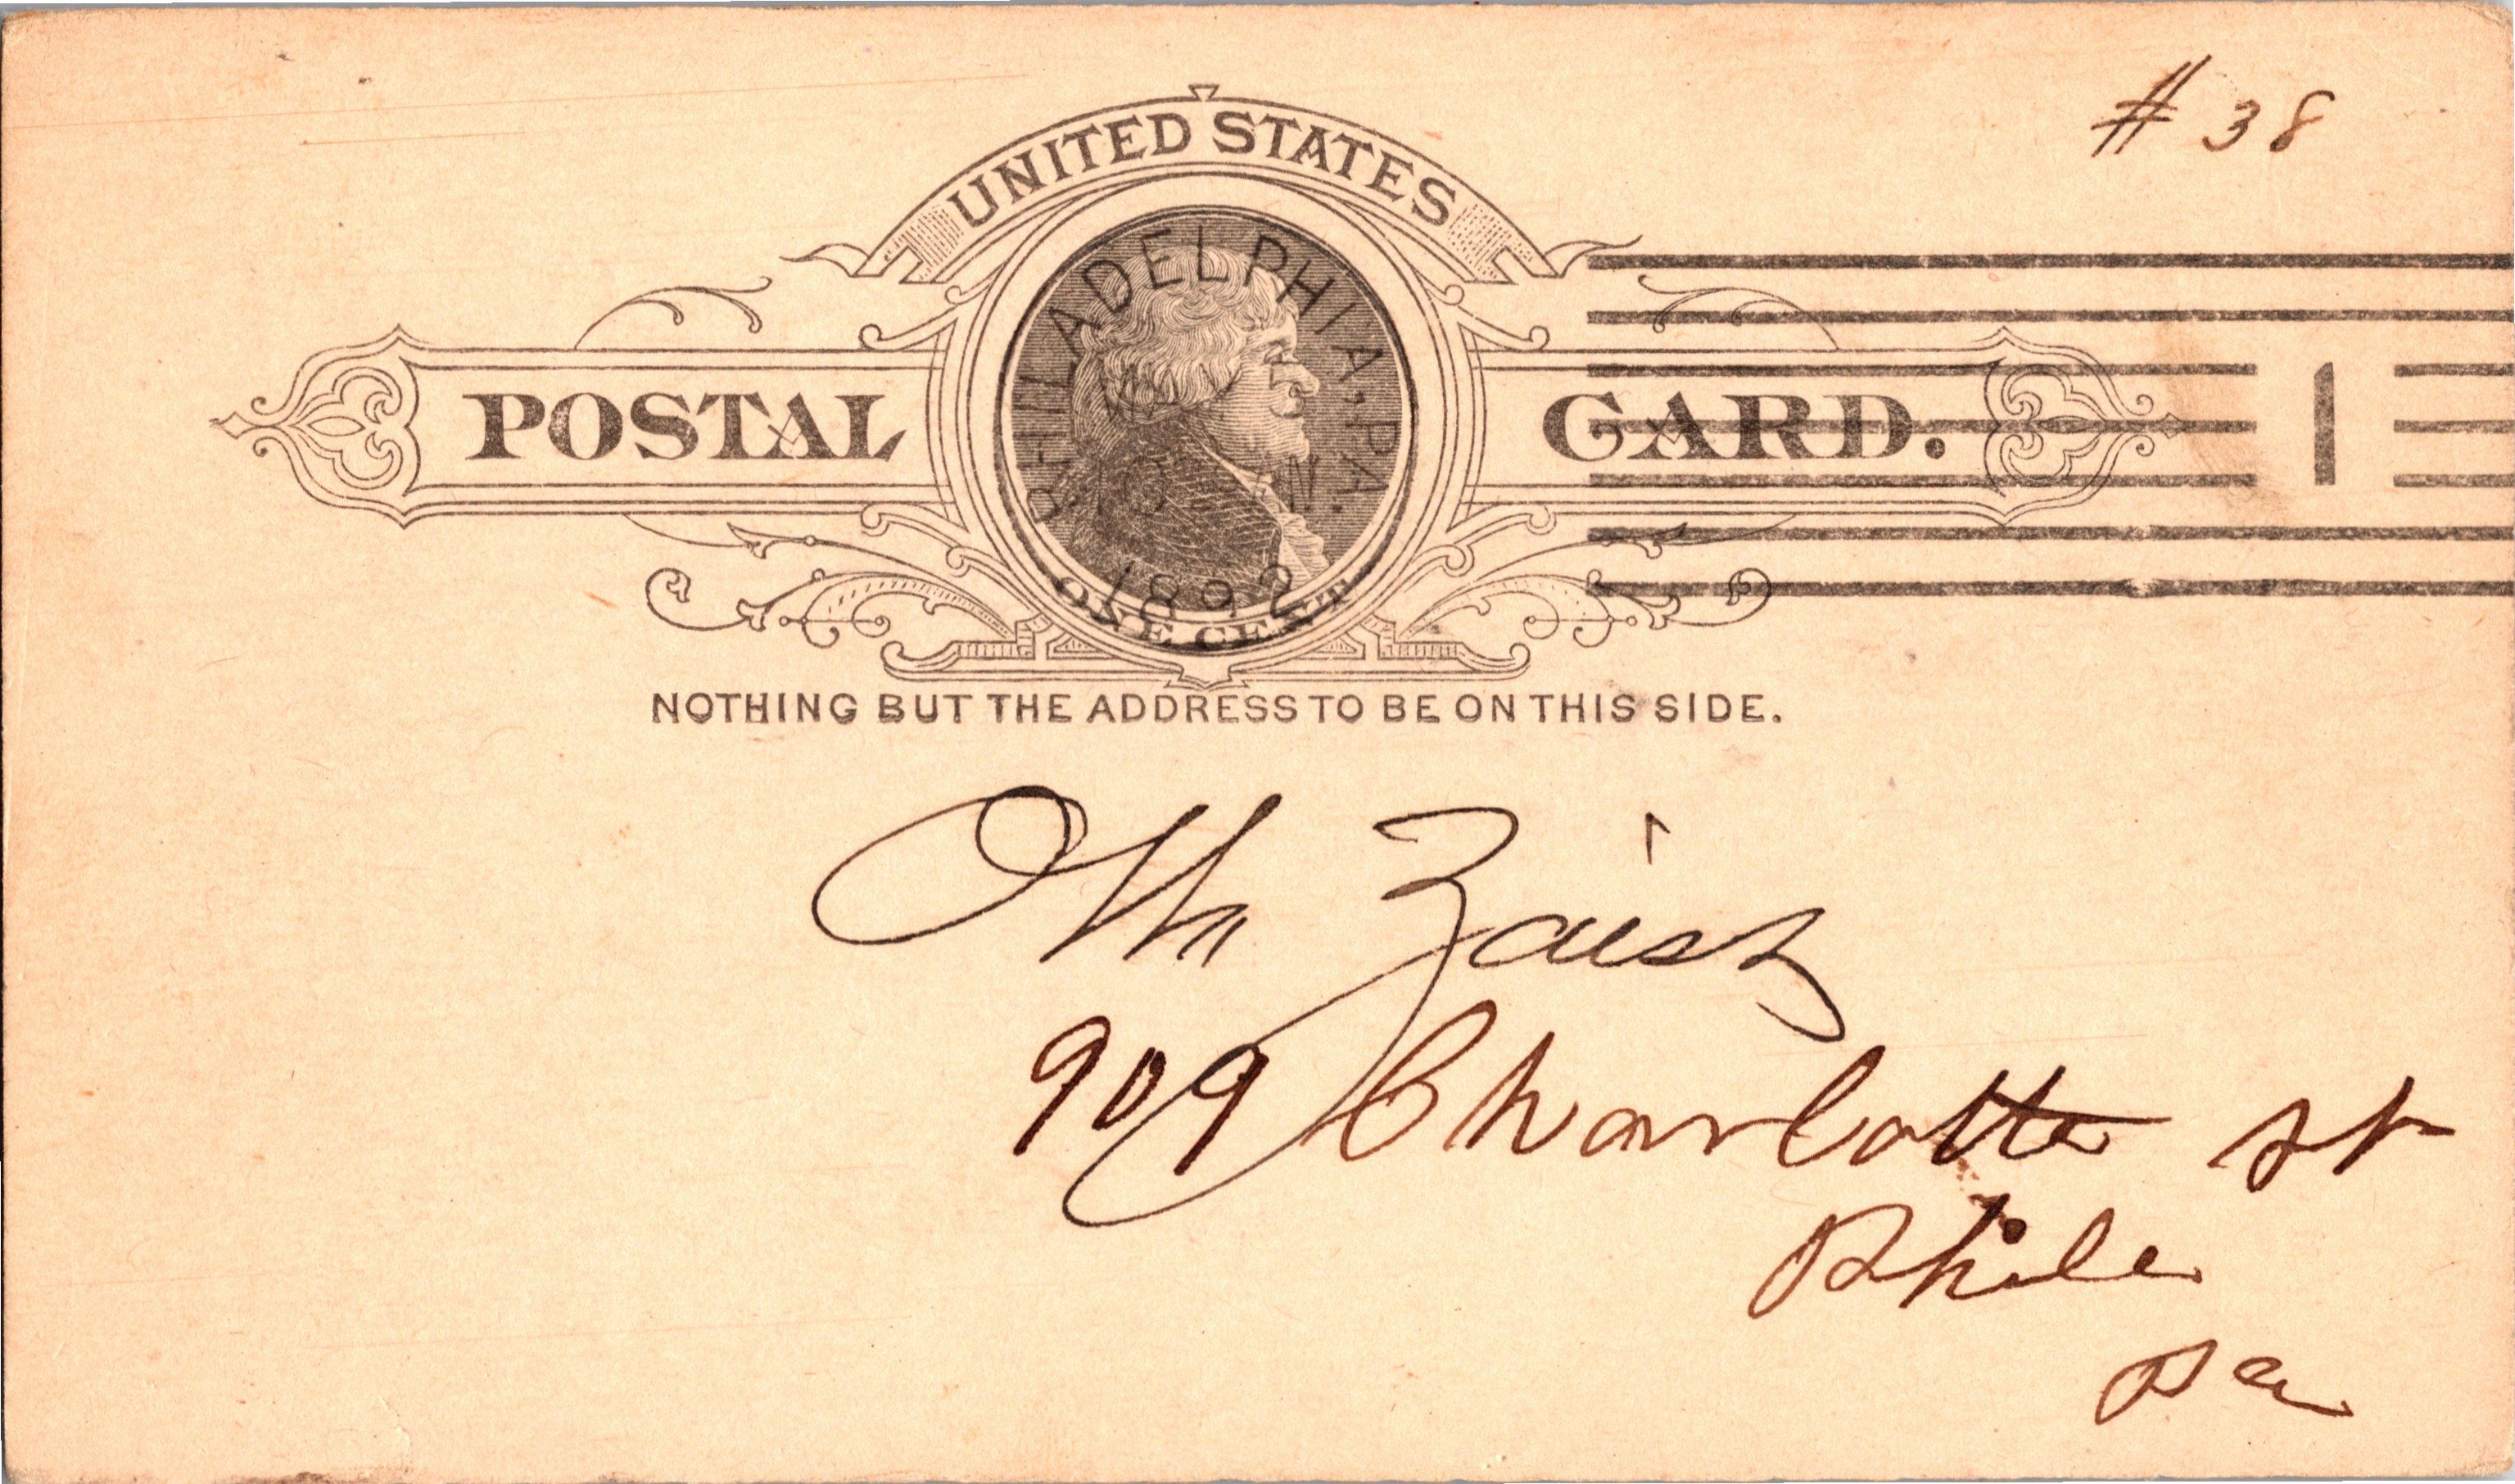 # 38
UNITED STATES
POSTAL CARD.
PHILADELPHIA, PA.
1892
ONE CENT
1
NOTHING BUT THE ADDRESS TO BE ON THIS SIDE.
Otto Zaisz
909 Charlotte st
Phila
Pa